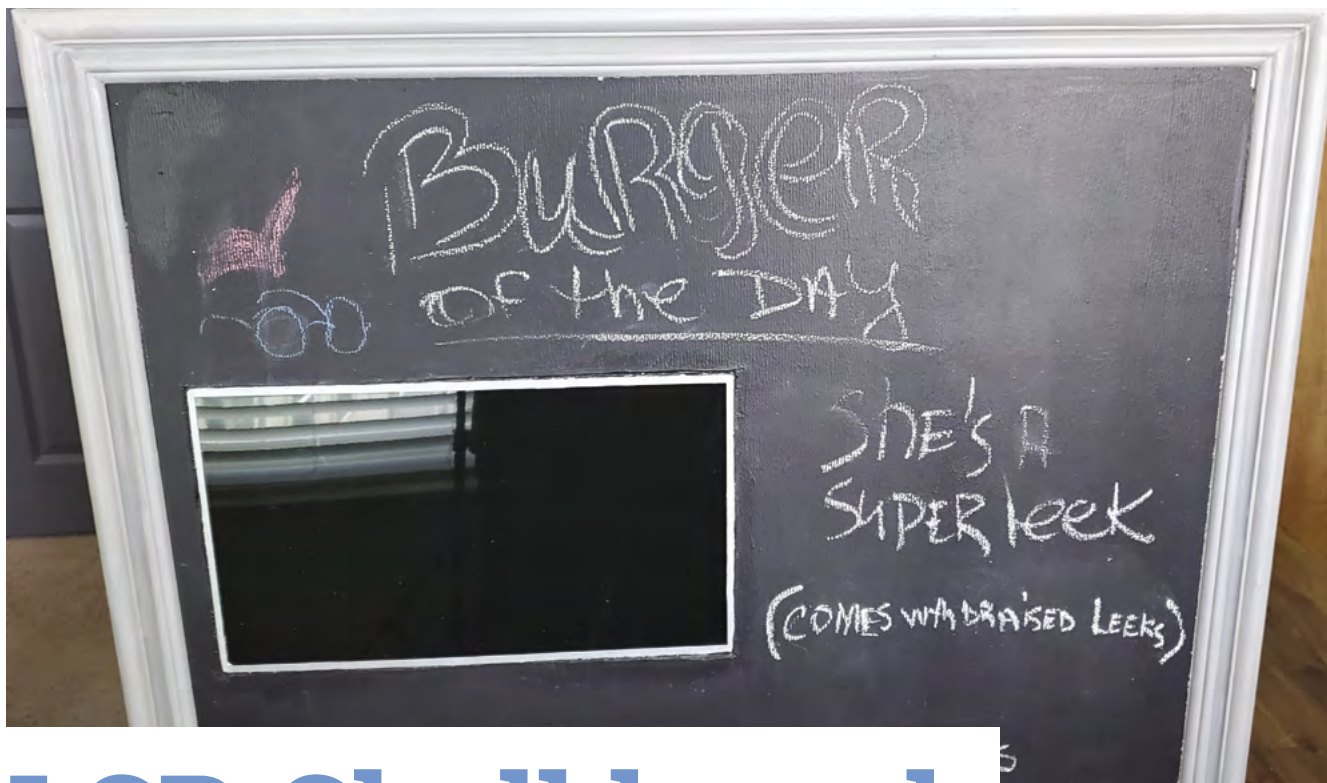 BURgER
OF the DAY
She's A
SUPER leek
(COMES WITH BRAISED LEEKS)